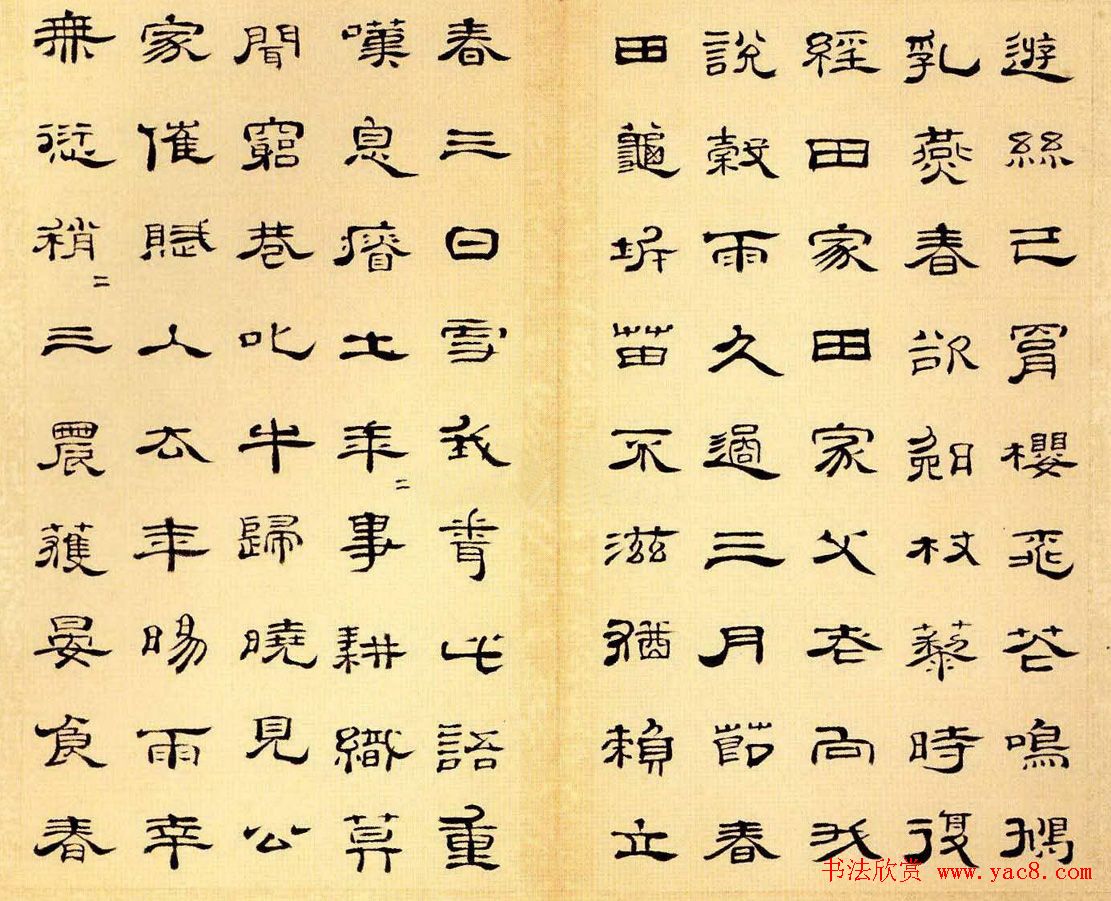 遊絲已罥櫻花鳴鳩
乳燕春欲杖藜時復
經田家田家父老向我
說穀雨久過三月節春
田龜坼苗不滋猶賴立
春三日雪我此語重
嘆息瘠土年〻事耕織莫
聞窮巷叱牛歸曉見公
家催賦入去年暘雨幸
無愆稍〻三農獲晏食春
书法欣赏 www.yac8.com